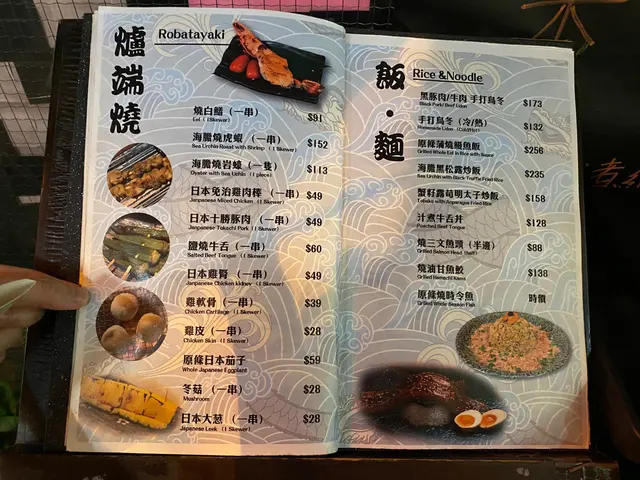 爐端燒
Robatayaki
燒白鱔（一串） $91
Eel (1 Skewer)
海膽燒虎蝦（一串） $152
Sea Urchin Roast with Shrimp (1 Skewer)
海膽燒岩蠔（一隻） $113
Oyster with Sea Urchin (1 piece)
日本免治雞肉棒（一串） $49
Janpanese Miced Chicken (1 Skewer)
日本十勝豚肉（一串） $49
Janpanese Tokachi Pork (1 Skewer)
鹽燒牛舌（一串） $60
Salted Beef Tongue (1 Skewer)
日本雞腎（一串） $49
Janpanese Chicken kidney (1 Skewer)
雞軟骨（一串） $39
Chicken Cartilage (1 Skewer)
雞皮（一串） $28
Chicken Skin (1 Skewer)
原條日本茄子 $59
Whole Japanese Eggplant
冬菇（一串） $28
Mushroom
日本大葱（一串） $28
Japanese Leek (1 Skewer)
飯・麵
Rice &Noodle
黑豚肉/牛肉 手打烏冬 $173
Black Pork/ Beef Udon
手打烏冬（冷/熱） $132
Homemade Udon (Cold/Hot)
原條蒲燒鰻魚飯 $256
Grilled Whole Eel in Rice with Sauce
海膽黑松露炒飯 $235
Sea Urchin with Black Truffle Fried Rice
蟹籽露荀明太子炒飯 $158
Tobiko with Asparagus Fried Rice
汁煮牛舌丼 $128
Poached Beef Tongue
燒三文魚頭（半邊） $88
Grilled Salmon Head (half)
燒油甘魚鮫 $138
Grilled Hamachi Kama
原條燒時令魚 時價
Grilled Whole Season Fish